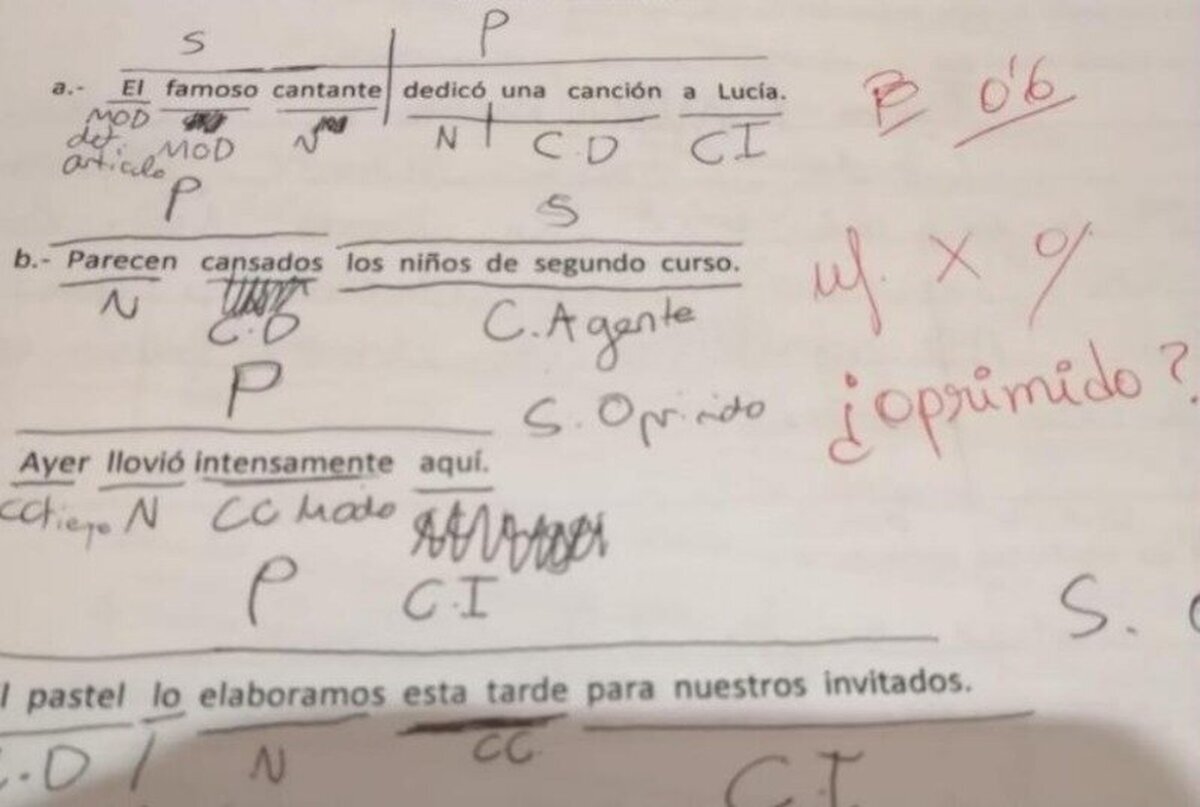 S P
a.- El famoso cantante dedicó una canción a Lucía. B 0'6
MOD det. artículo MOD N N C.D CI
P S
b.- Parecen cansados los niños de segundo curso. X
N C.D C.Agente
P S. Oprimido ¿oprimido?
Ayer llovió intensamente aquí.
N CC Modo
P C.I S.
l pastel lo elaboramos esta tarde para nuestros invitados.
.D N CC C.I